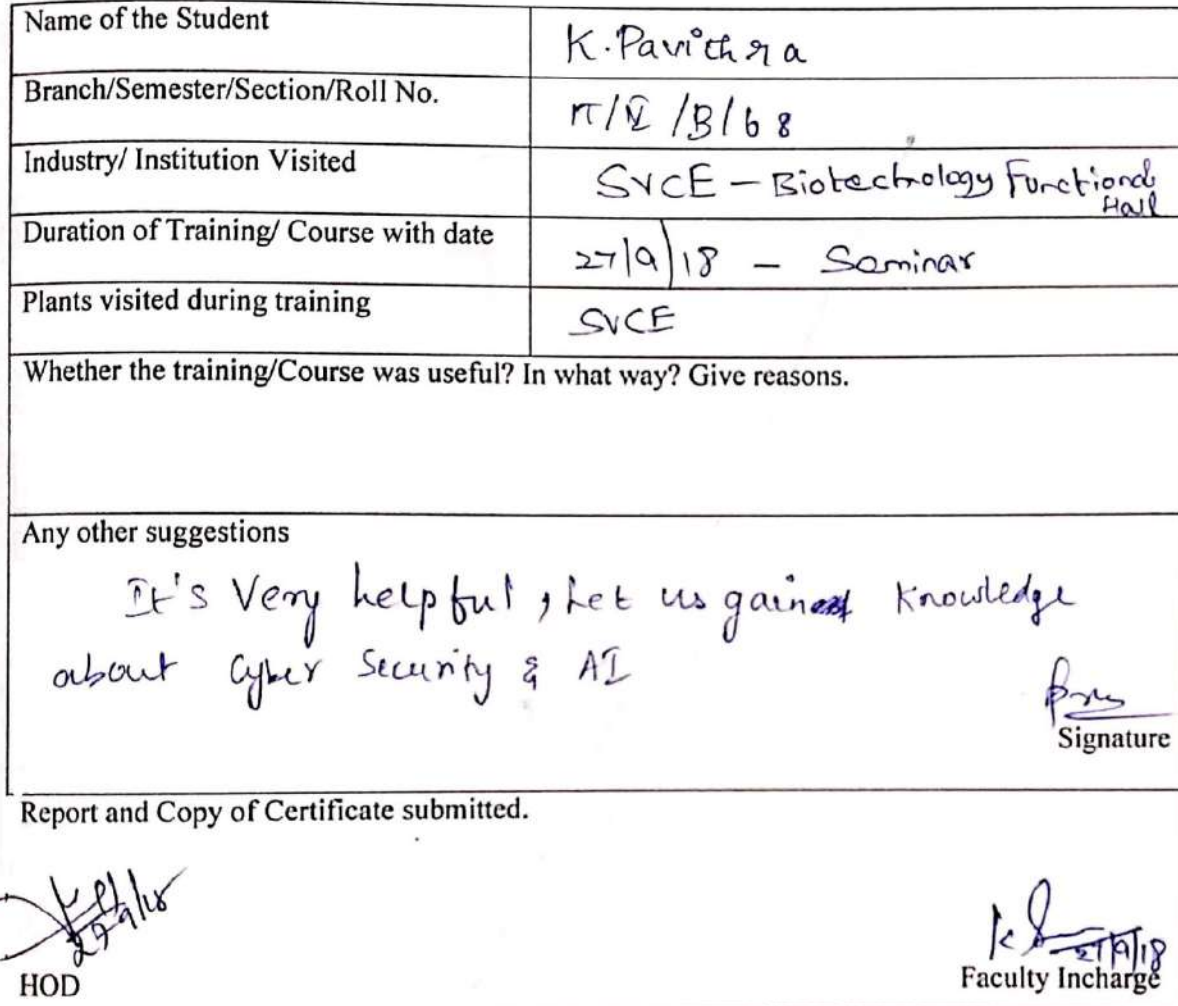 Name of the Student
K. Pavithra
Branch/Semester/Section/Roll No.
IT/ /B/68
Industry/ Institution Visited
SVCE - Biotechnology Functional
Hall
Duration of Training/ Course with date
27/9/18 - Seminar
Plants visited during training
SVCE
Whether the training/Course was useful? In what way? Give reasons.
Any other suggestions
It's Very helpful, Let us gain knowledge
about Cyber Security & AI
Signature
Report and Copy of Certificate submitted.
27/9/18
HOD
27/9/18
Faculty Incharge